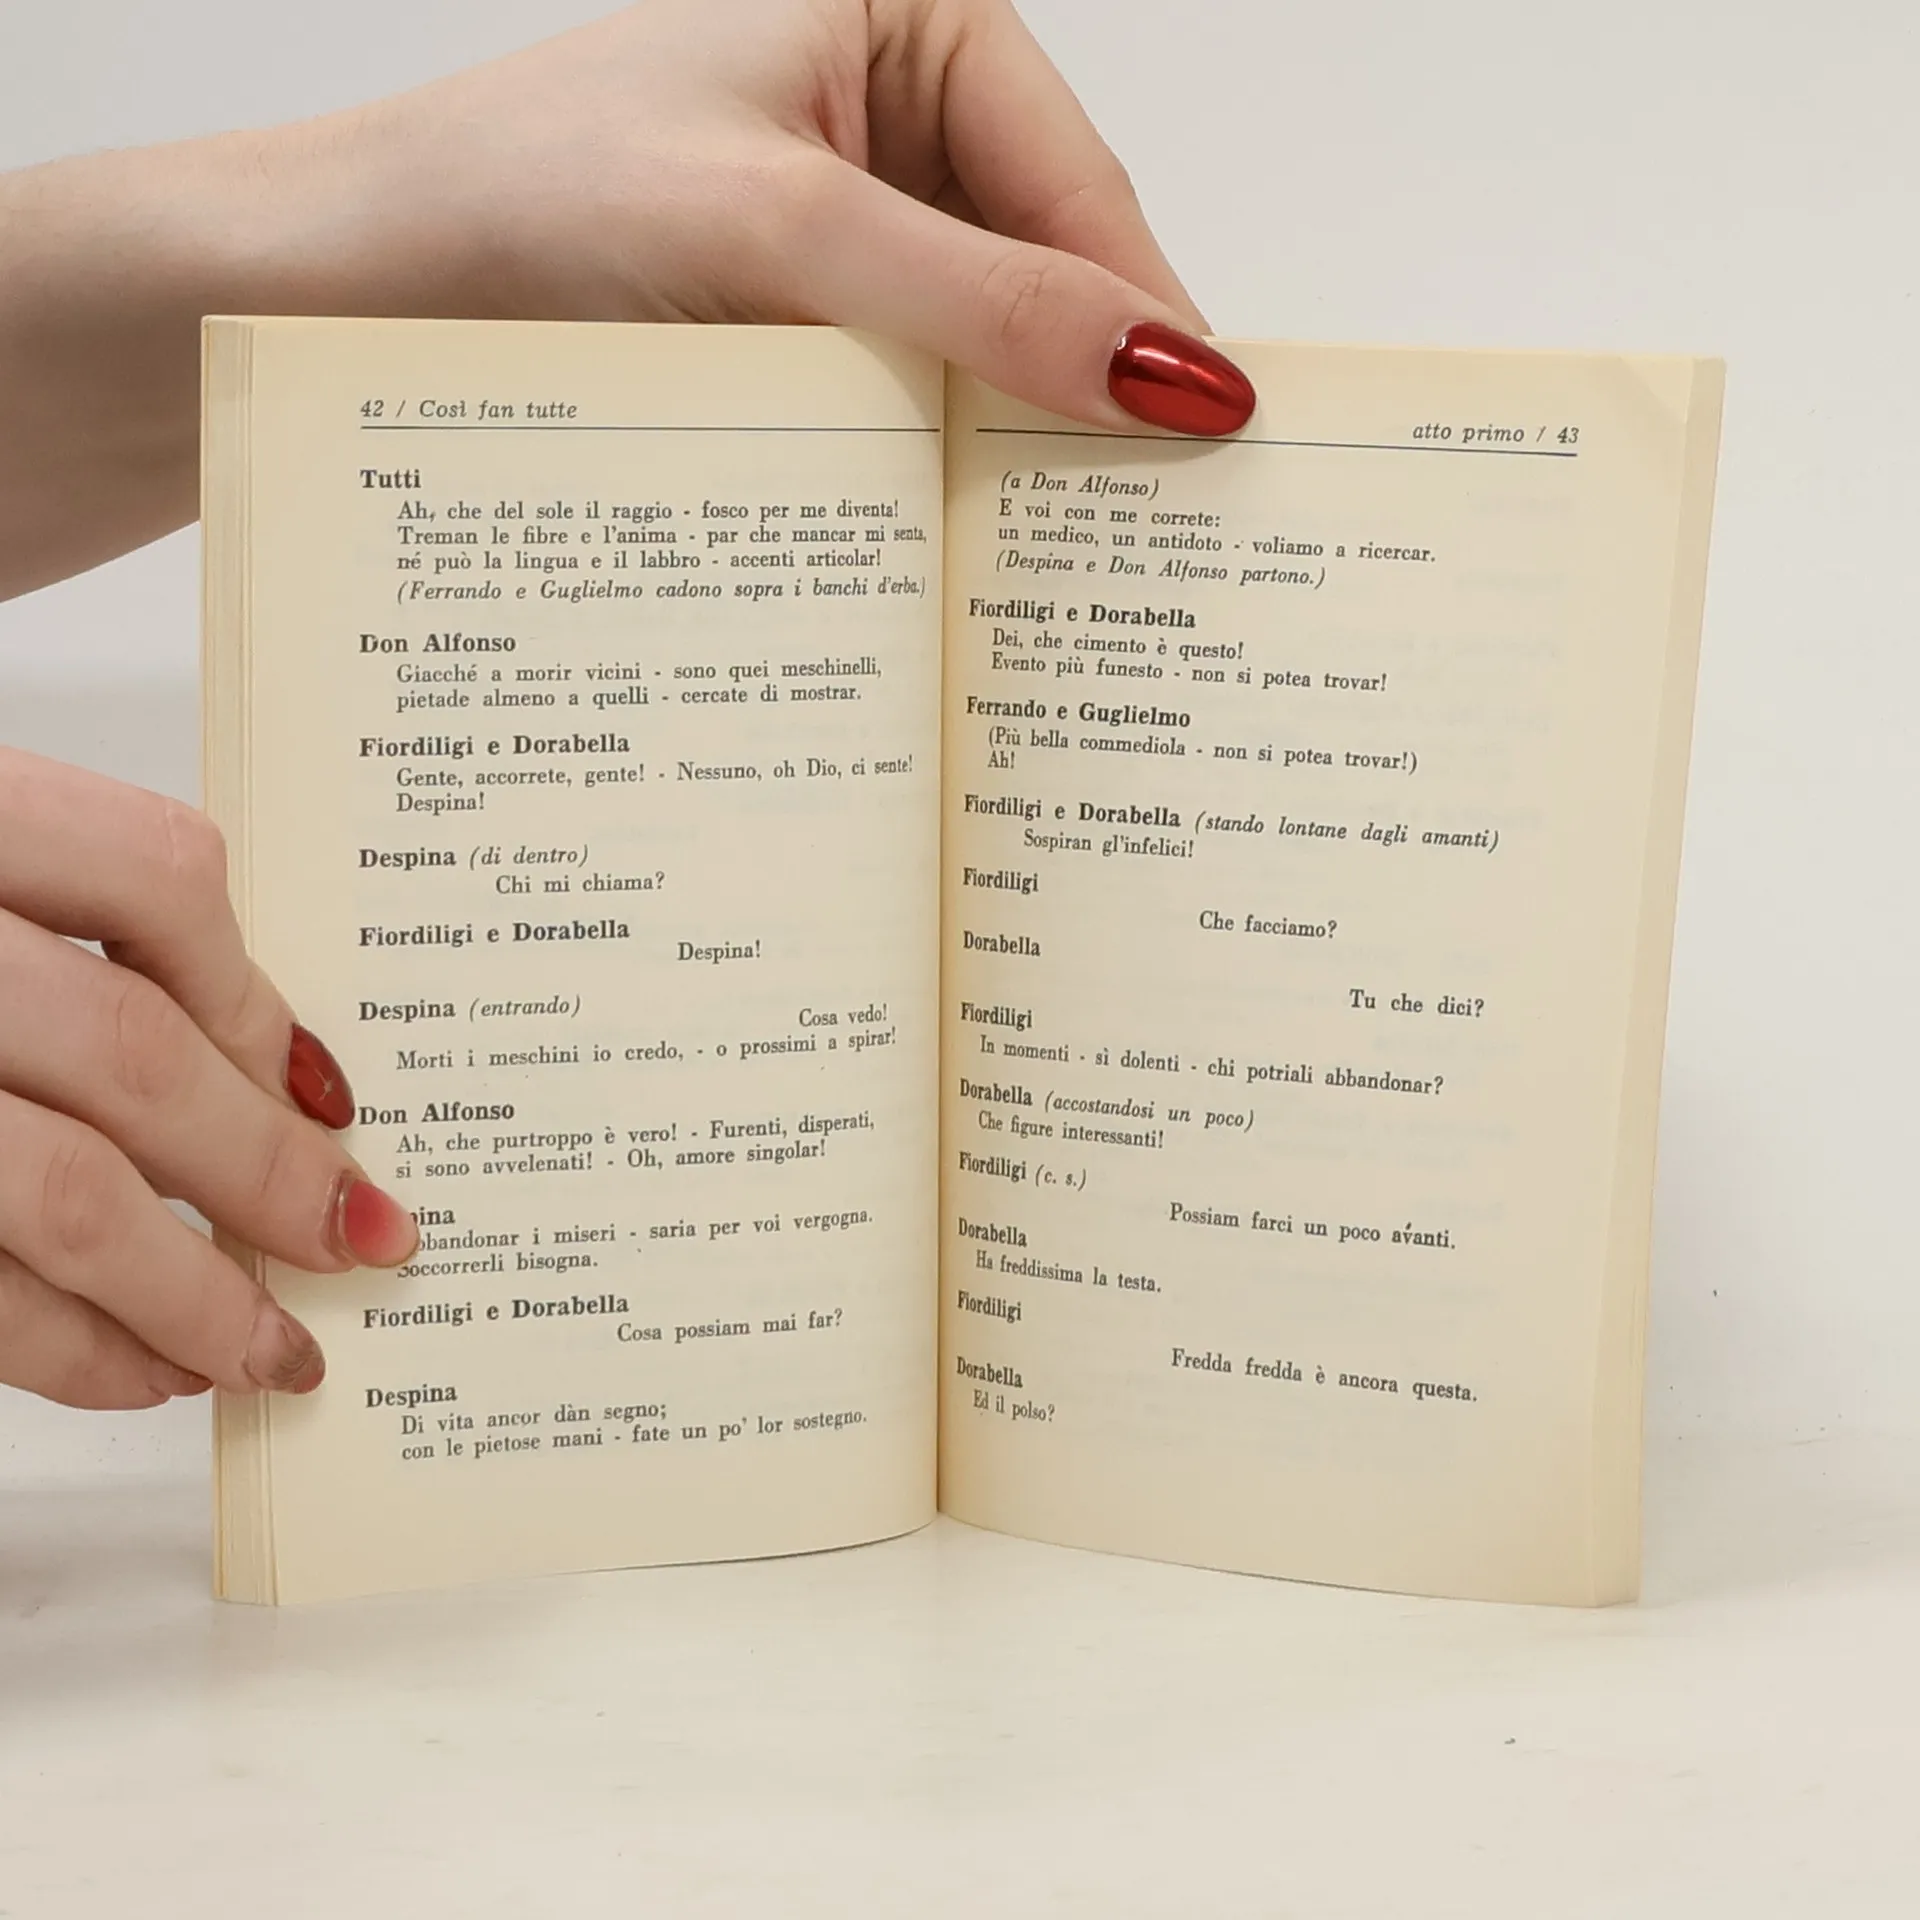 42 / Così fan tutte
Tutti
Ah, che del sole il raggio - fosco per me diventa!
Treman le fibre e l'anima - par che mancar mi senta,
né può la lingua e il labbro - accenti articolar!
(Ferrando e Guglielmo cadono sopra i banchi d'erba.)
Don Alfonso
Giacché a morir vicini - sono quei meschinelli,
pietade almeno a quelli - cercate di mostrar.
Fiordiligi e Dorabella
Gente, accorrete, gente! - Nessuno, oh Dio, ci sente!
Despina!
Despina (di dentro)
Chi mi chiama?
Fiordiligi e Dorabella
Despina!
Despina (entrando)
Cosa vedo!
Morti i meschini io credo, - o prossimi a spirar!
Don Alfonso
Ah, che purtroppo è vero! - Furenti, disperati,
si sono avvelenati! - Oh, amore singolar!
pina
bbandonar i miseri - saria per voi vergogna.
Soccorrerli bisogna.
Fiordiligi e Dorabella
Cosa possiam mai far?
Despina
Di vita ancor dàn segno;
con le pietose mani - fate un po' lor sostegno.
atto primo / 43
(a Don Alfonso)
E voi con me correte:
un medico, un antidoto - voliamo a ricercar.
(Despina e Don Alfonso partono.)
Fiordiligi e Dorabella
Dei, che cimento è questo!
Evento più funesto - non si potea trovar!
Ferrando e Guglielmo
(Più bella commediola - non si potea trovar!)
Ah!
Fiordiligi e Dorabella (stando lontane dagli amanti)
Sospiran gl'infelici!
Fiordiligi
Che facciamo?
Dorabella
Tu che dici?
Fiordiligi
In momenti - sì dolenti - chi potriali abbandonar?
Dorabella (accostandosi un poco)
Che figure interessanti!
Fiordiligi (c. s.)
Possiam farci un poco avanti.
Dorabella
Ha freddissima la testa.
Fiordiligi
Fredda fredda è ancora questa.
Dorabella
Ed il polso?